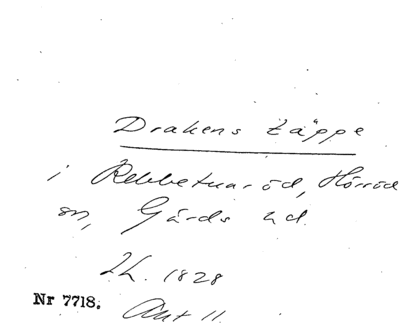 Drakens täppe
i Rebbetuaröd, Hörröd
sn, Gärds hd.
LL. 1828
Nr 7718. Akt 11